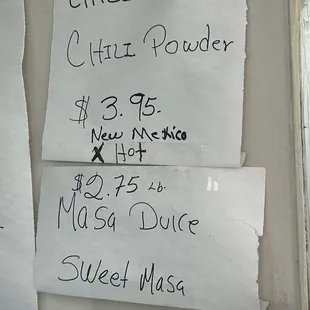 CHILI Powder
$ 3.95.
New Mexico
X Hot
$2.75 Lb.
Masa Dulce
Sweet Masa